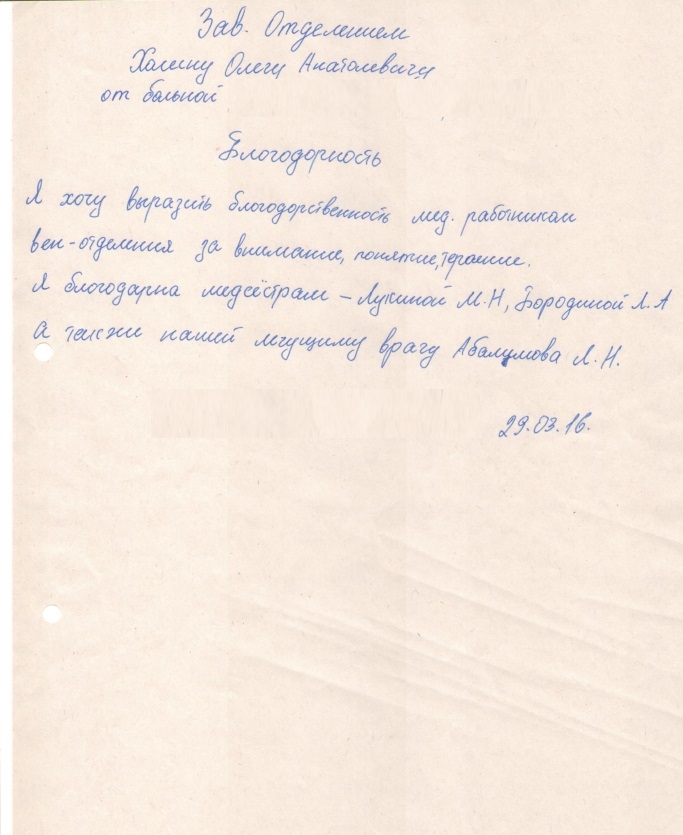 Зав. Отделением
Халину Олегу Анатолевичу
от больной
Благодорность
Я хочу выразить благодорственность мед. работникам
вен-отделения за внимание, понятие, терпение.
Я благодарна медсёстрам – Лукиной М.Н, Бородиной Л.А
а также нашей лечущиму врачу Абалумова Л.Н.
29.03.16.